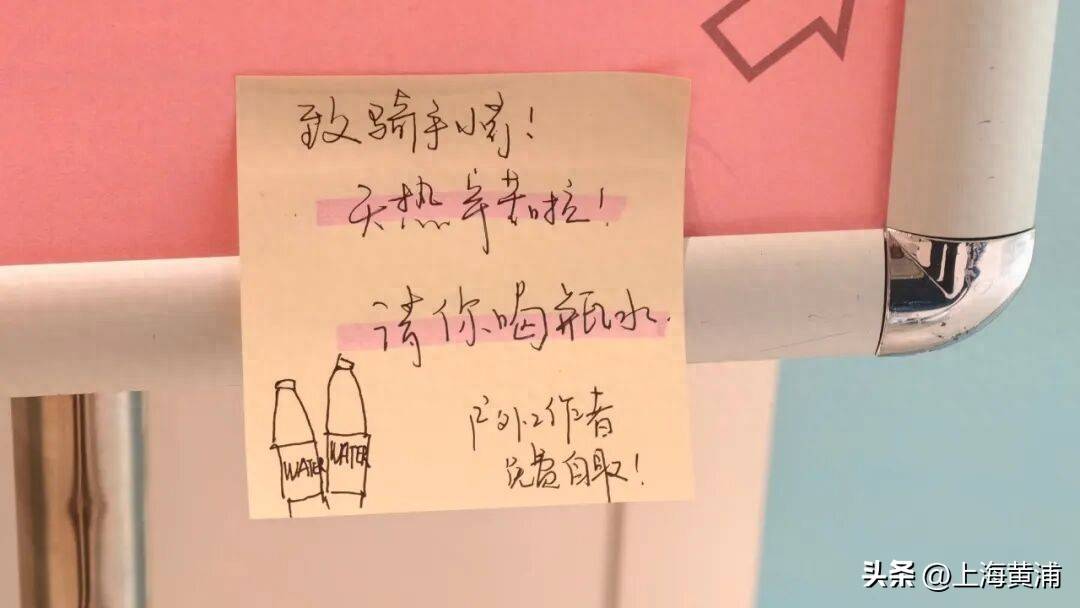 致骑手小哥！
天热辛苦啦！
请你喝瓶水.
户外工作者
免费自取！
WATER
WATER
头条 @上海黄浦